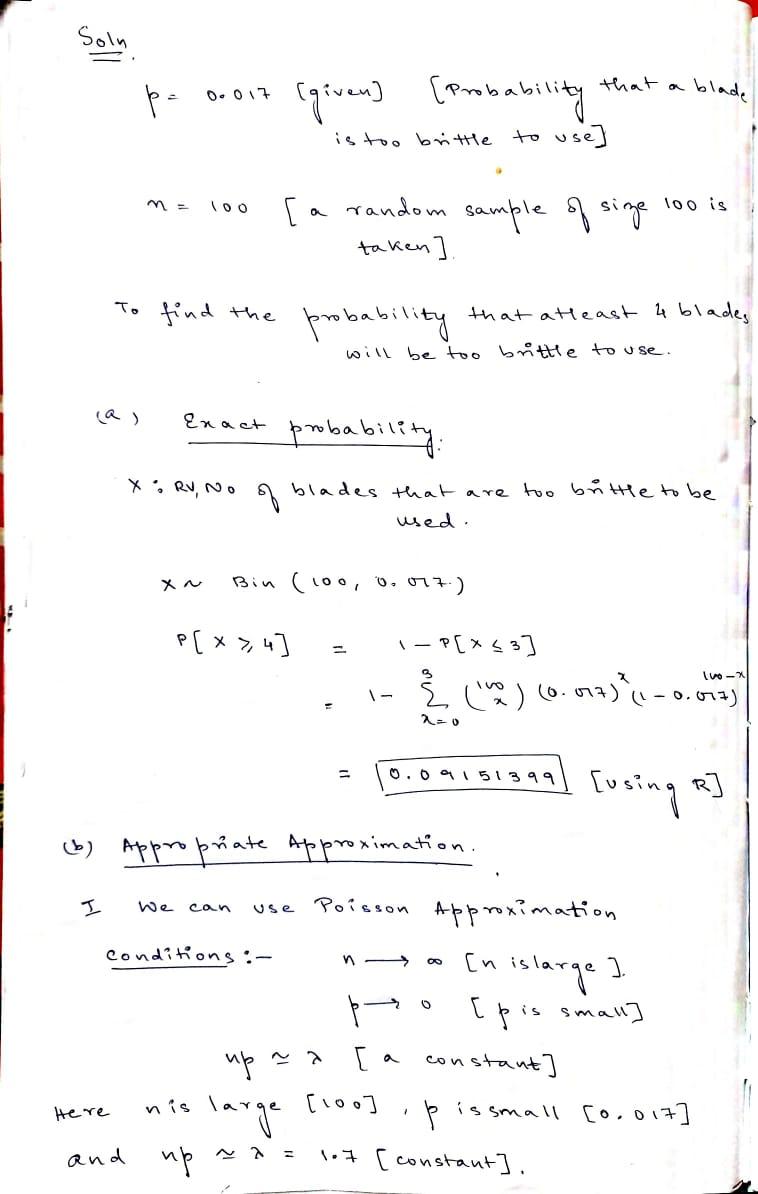 Soln.
p = 0.017 [given] [Probability that a blade
is too brittle to use]
n = 100 [a random sample of size 100 is
taken].
To find the probability that atleast 4 blades
will be too brittle to use.
(a) Exact probability:
X: RV, No of blades that are too brittle to be
used.
X ~ Bin (100, 0.017)
P[X ⩾ 4] = 1 - P[X ≤ 3]
3 100-x
= 1 - Σ (100 x) (0.017)^x (1 - 0.017)
x=0
= 0.09151399 [using R]
(b) Appropriate Approximation.
I We can use Poisson Approximation
Conditions :- n → ∞ [n is large].
p → 0 [p is small]
np ≃ λ [a constant]
Here n is large [100], p is small [0.017]
and np ≃ λ = 1.7 [constant].